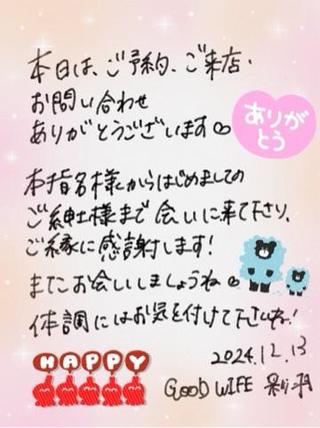 本日は、ご予約、ご来店・
お問い合わせ
ありがとうございます♡
ありが
とう
本指名様からはじめましての
ご紳士様まで会いに来て下さり、
ご縁に感謝します!
またお会いしましょうね♡
体調にはお気を付けて下さいね!
HAPPY
2024.12.13
GOOD WIFE